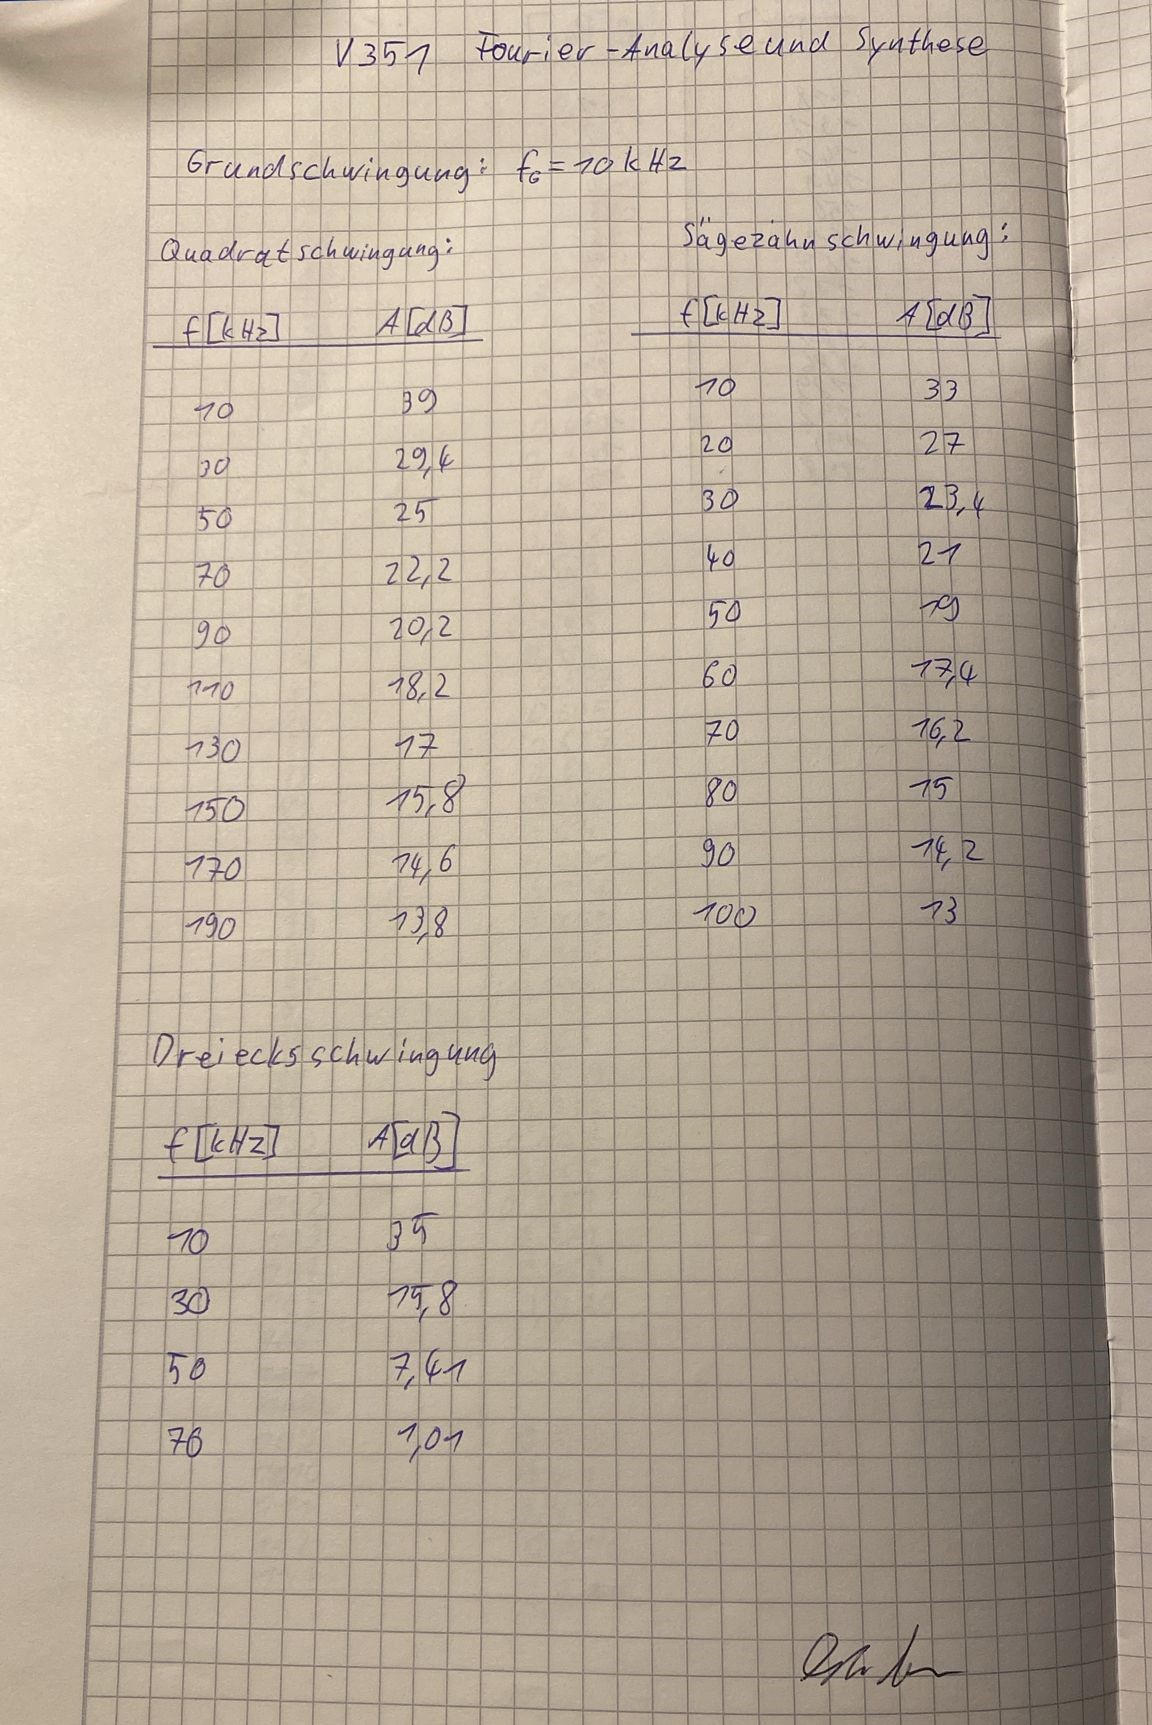 V351 Fourier-Analyse und Synthese
Grundschwingung: f_G = 10 kHz
Quadratschwingung:
f [kHz] A [dB]
10 39
30 29,4
50 25
70 22,2
90 20,2
110 18,2
130 17
150 15,8
170 14,6
190 13,8
Sägezahnschwingung:
f [kHz] A [dB]
10 33
20 27
30 23,4
40 21
50 19
60 17,4
70 16,2
80 15
90 14,2
100 13
Dreiecksschwingung
f [kHz] A [dB]
10 35
30 15,8
50 7,41
70 1,01